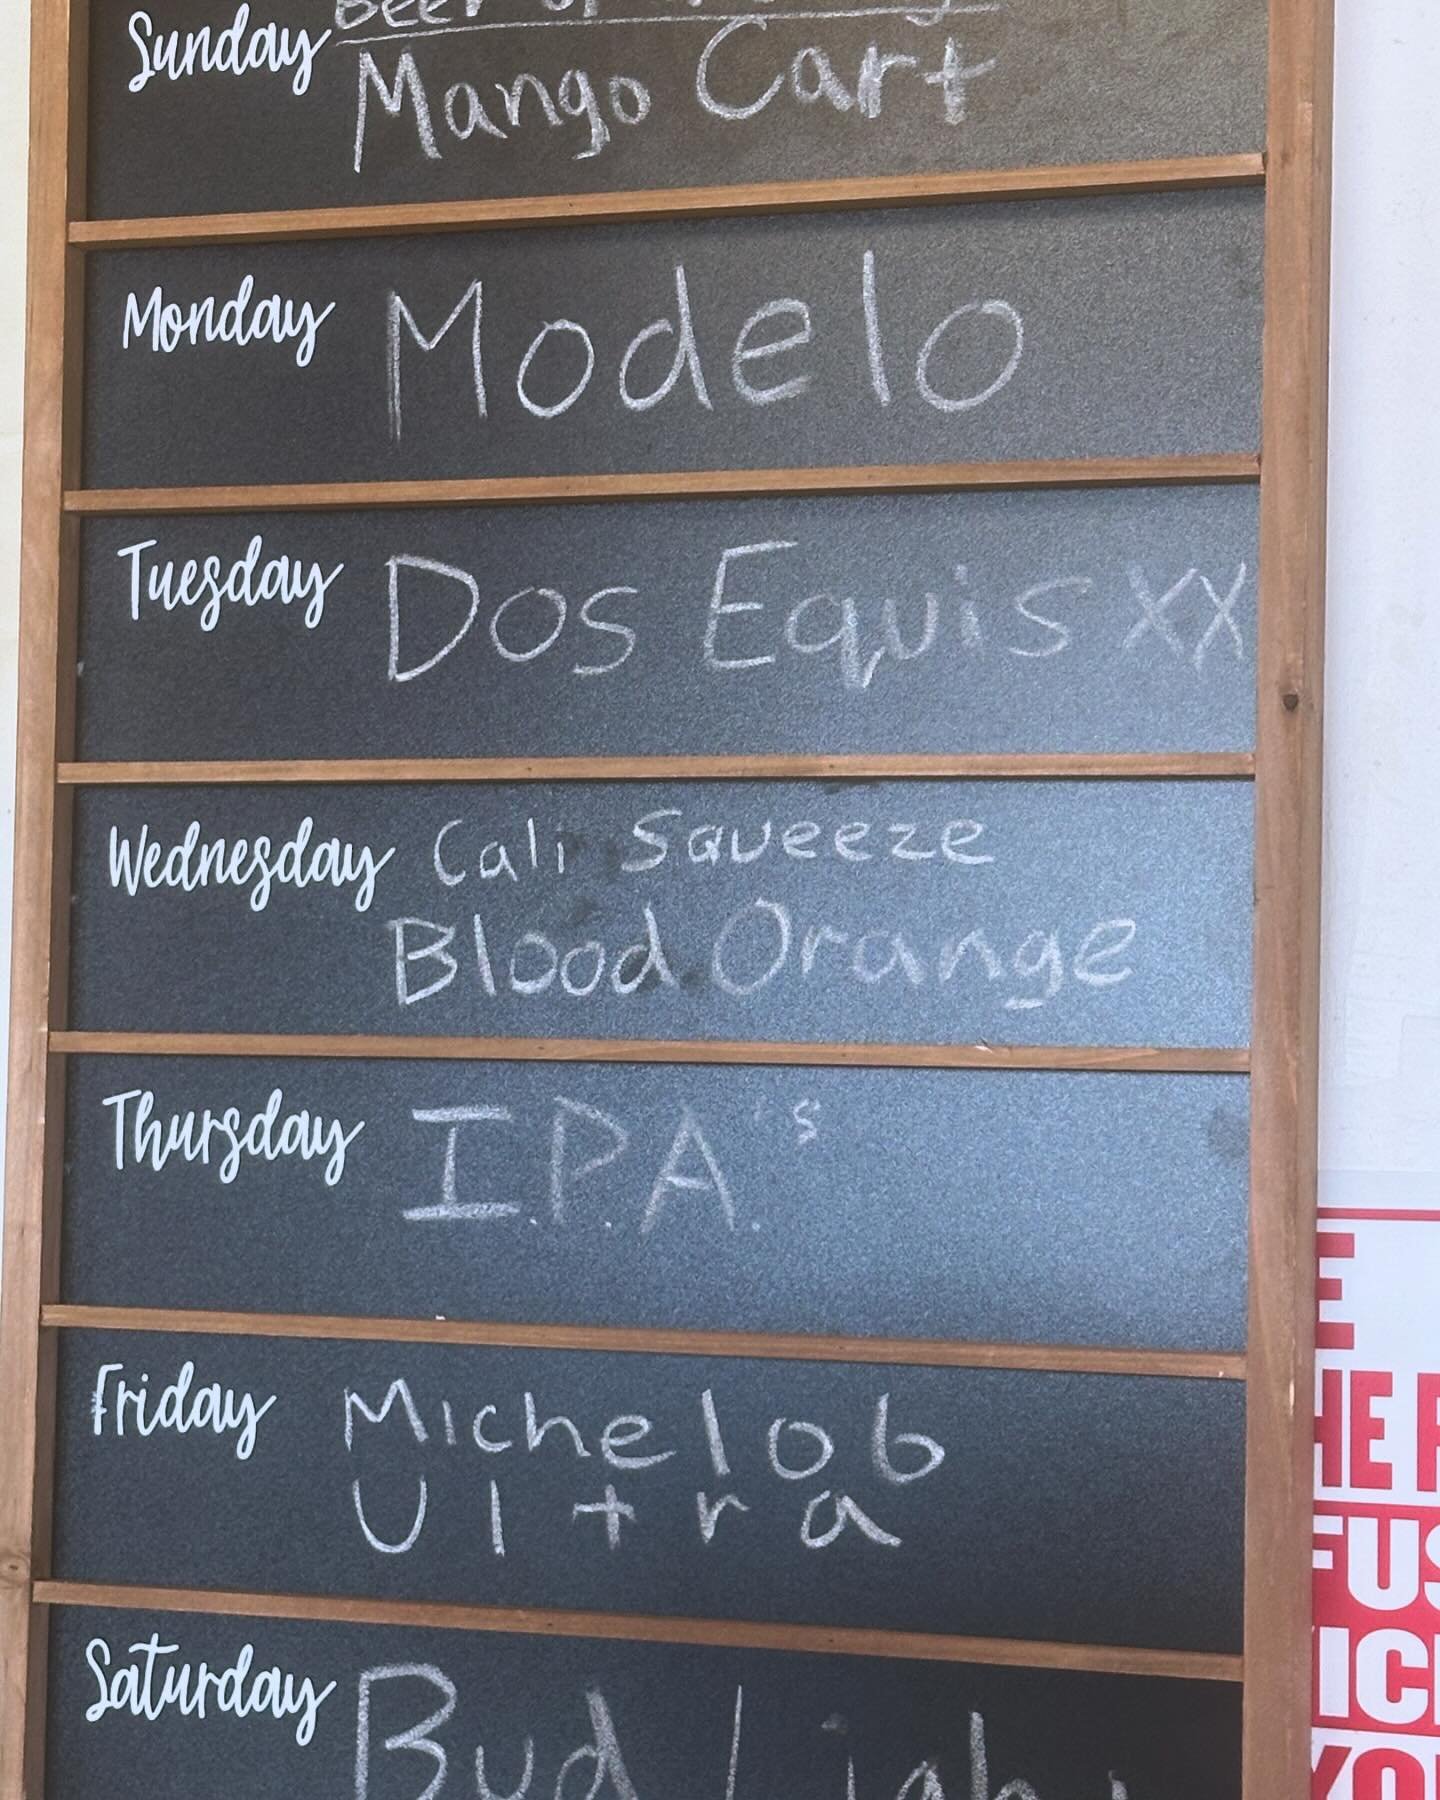 Beer of
Sunday Mango Cart
Monday Modelo
Tuesday Dos Equis XX
Wednesday Cali Squeeze
Blood Orange
Thursday I.P.A.'s
Friday Michelob
Ultra
Saturday Bud Light
E
HE F
FUS
ICI
YOU